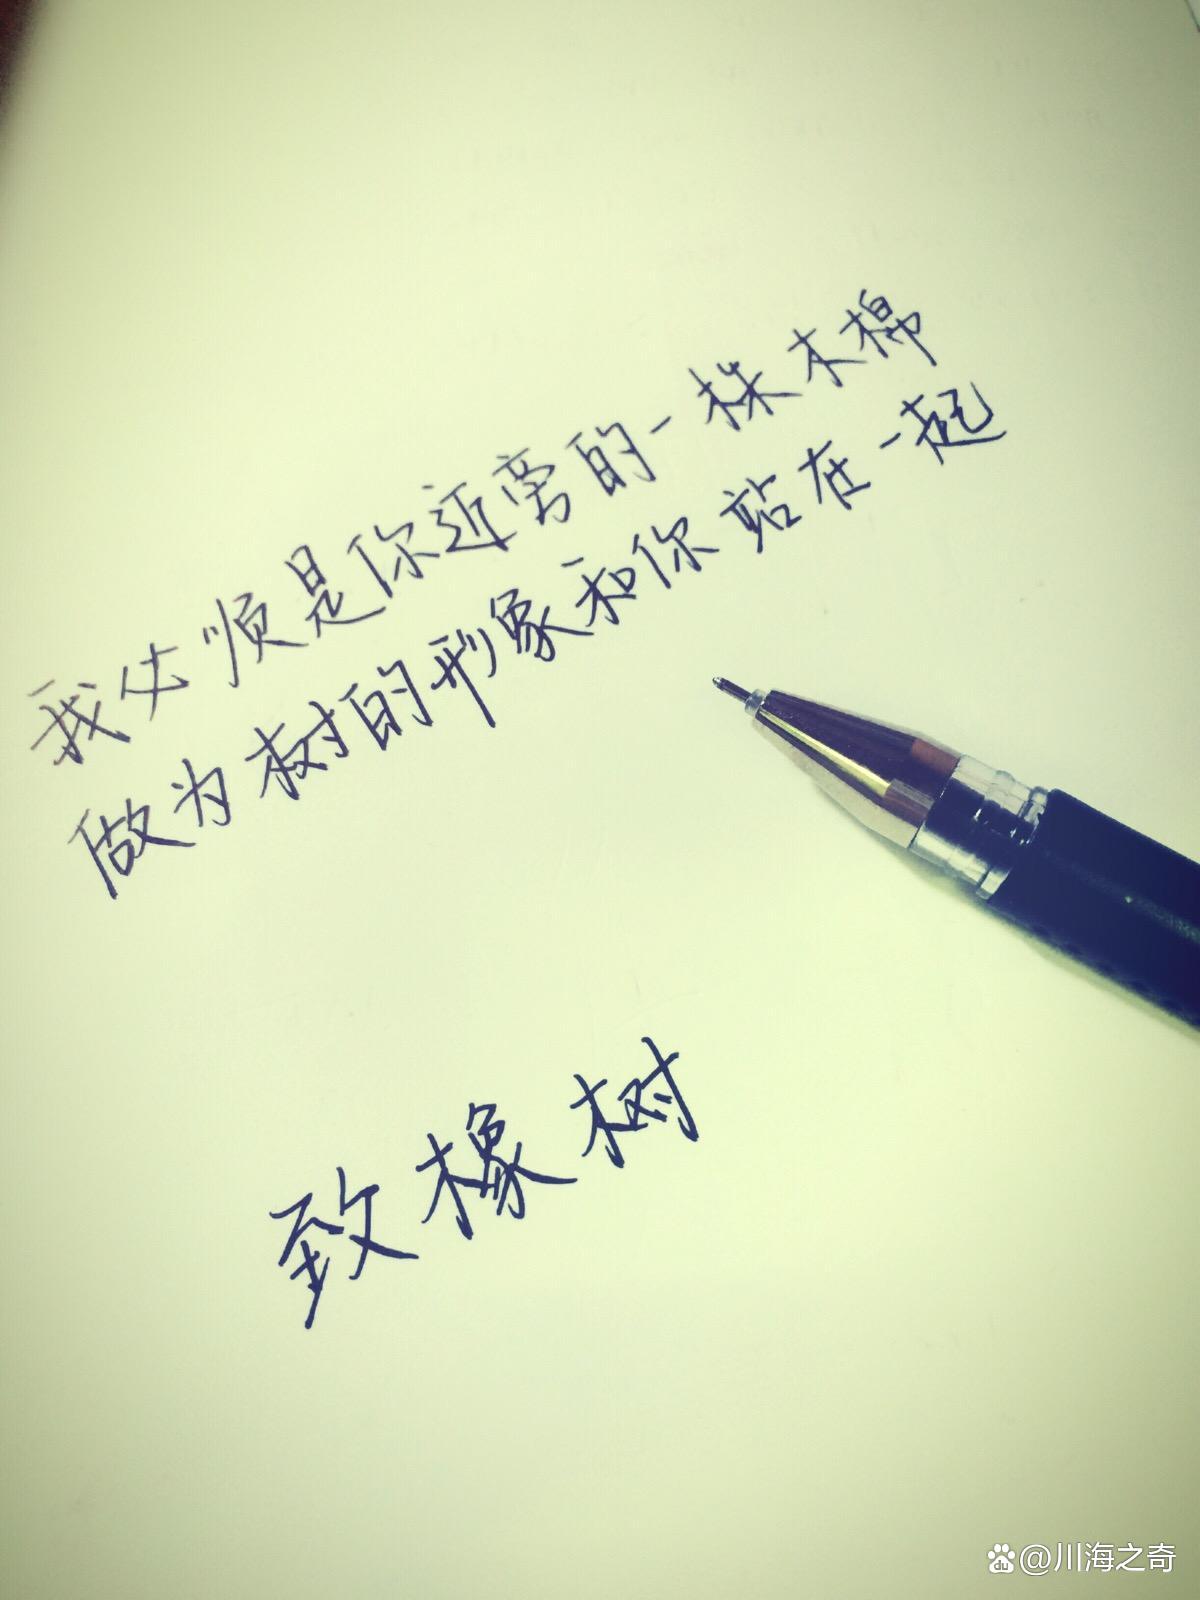 我必须是你近旁的一株木棉
做为树的形象和你站在一起
致橡树
@川海之奇